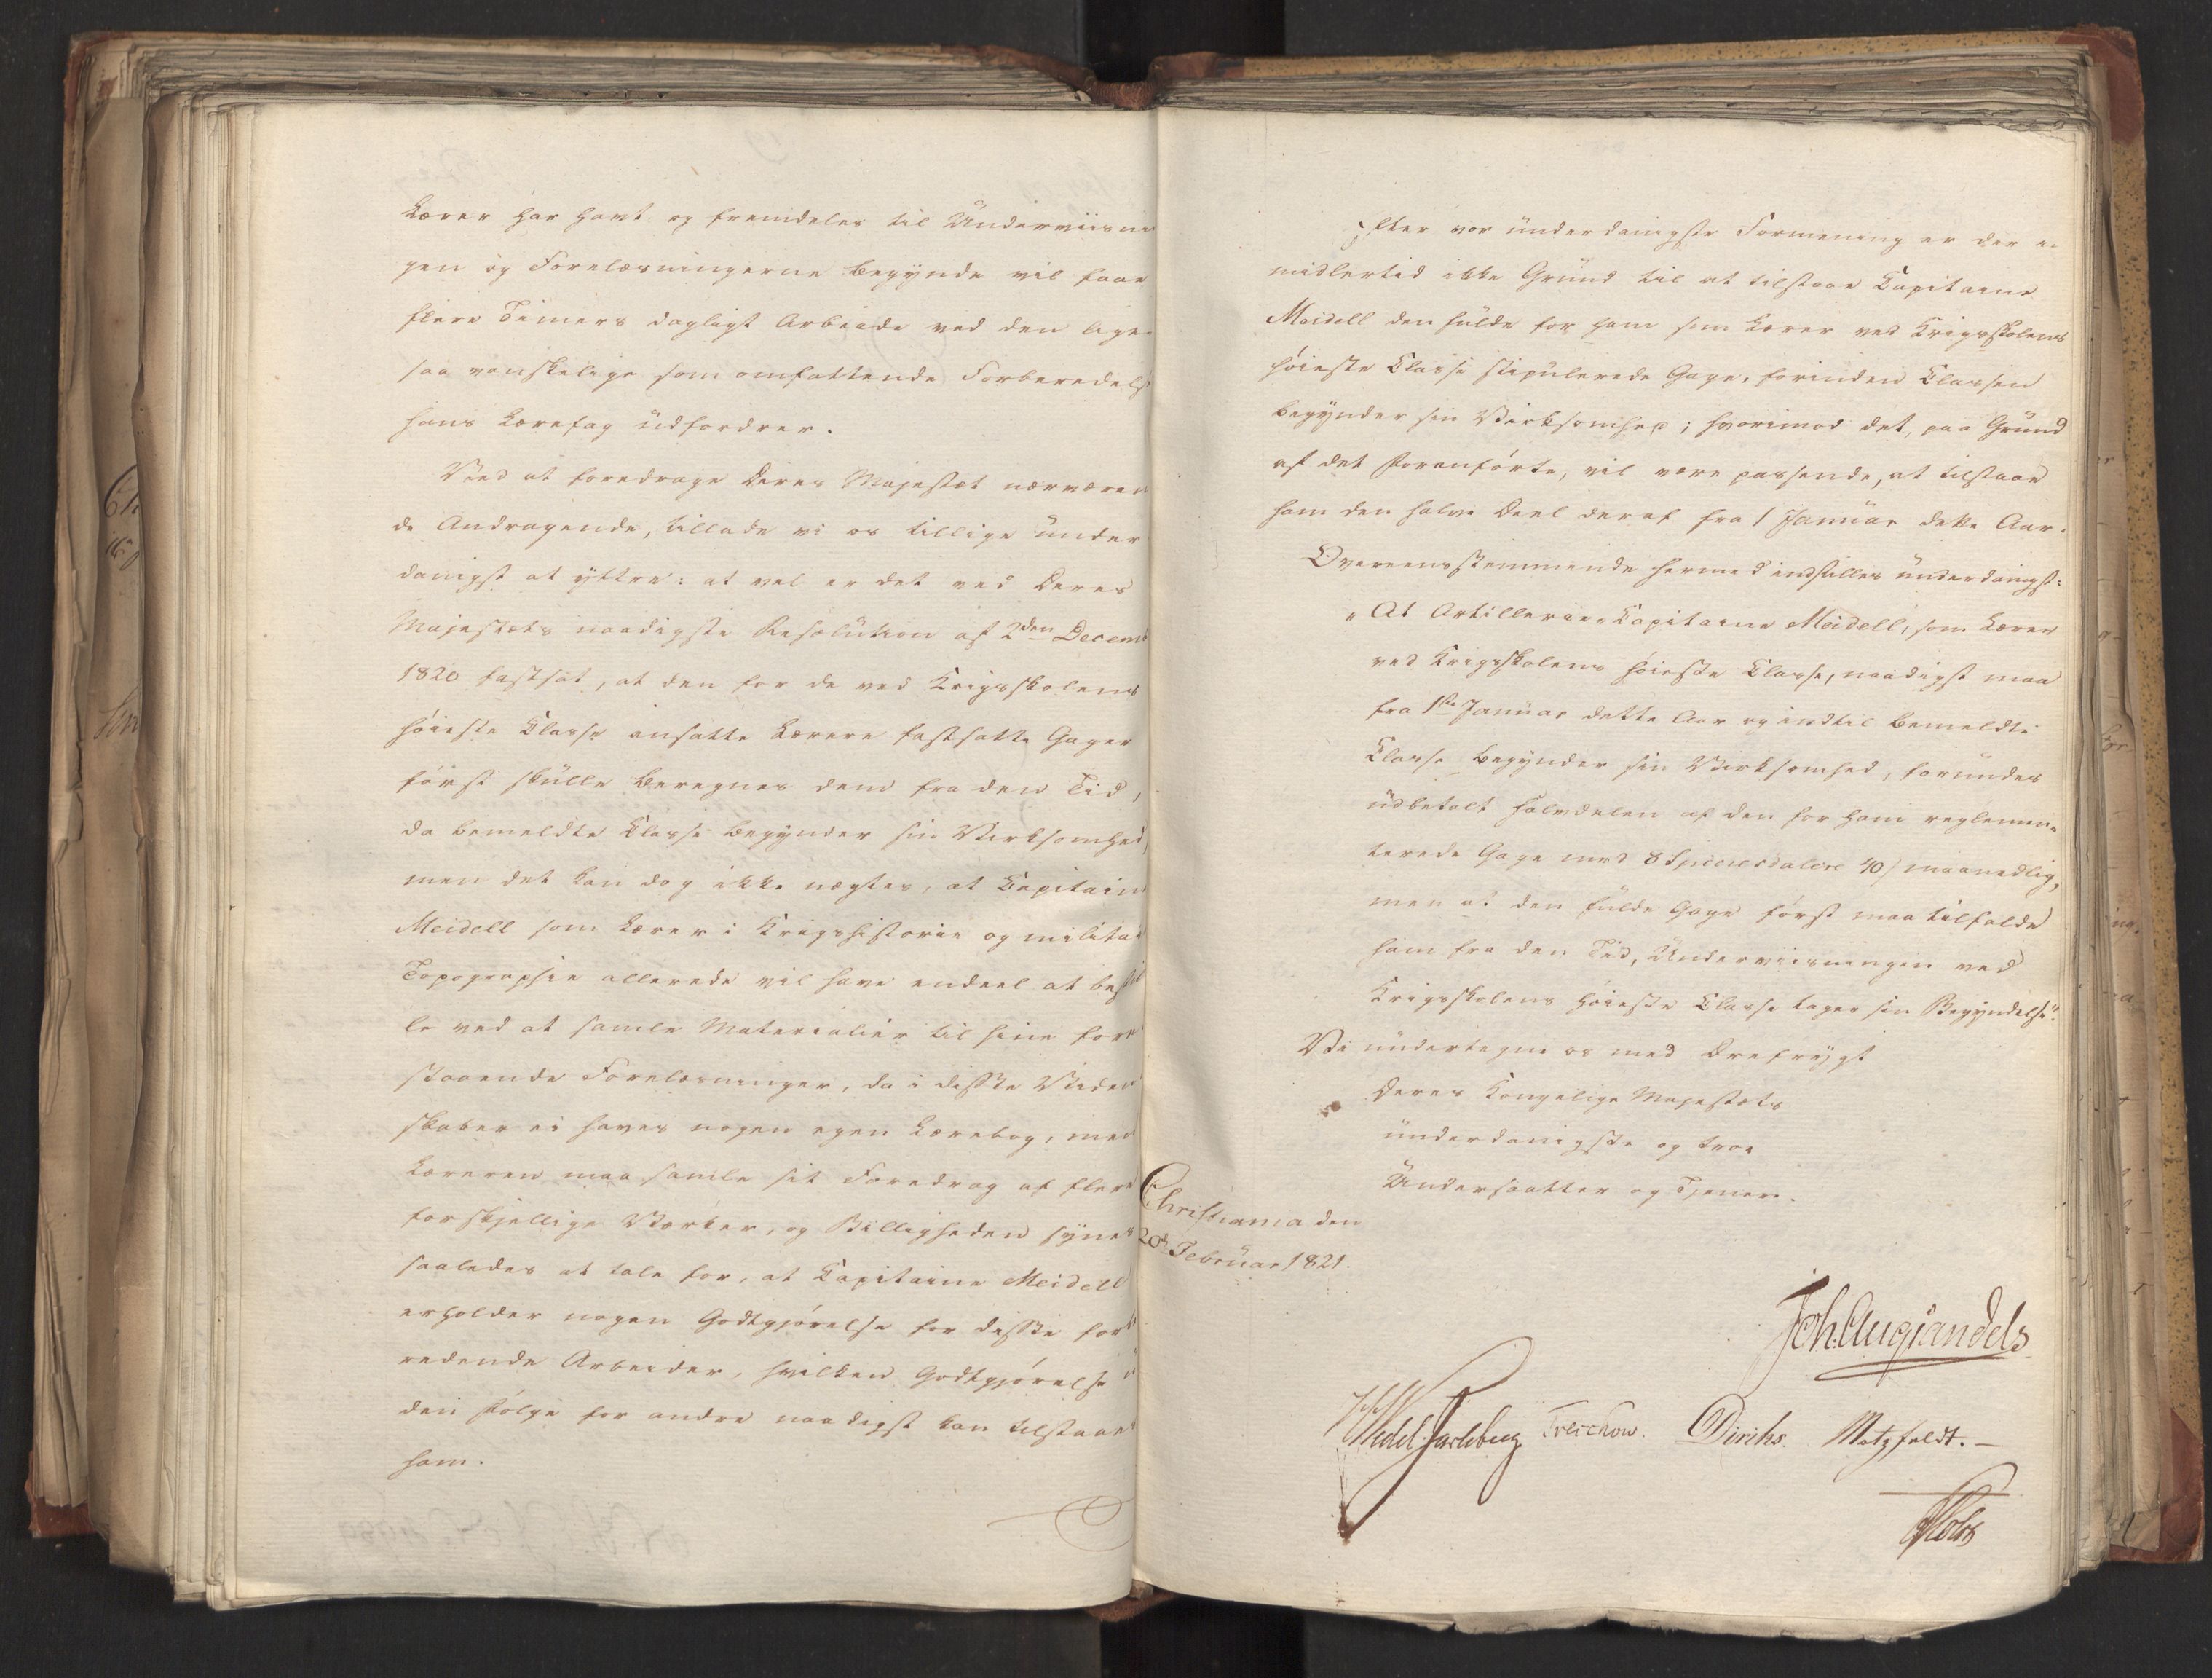 Lærer har havt og fremdeles til Underviisnin
gen og Forelæsningerne begynde vil faae
flere Timers dagligt Arbeide ved den lige
saa vanskelige som omfattende Forberedelse
hans Lærefag udfordrer.
Ved at foredrage Deres Majestæt nærværen
de Andragende, tillade vi os tillige under
danigst at yttre: at vel er det ved Deres
Majestæts naadigste Resolution af 2den Decemb
1820 fastsat, at den for de ved Krigsskolens
høieste Classe ansatte Lærere fastsatte Gager
først skulle beregnes dem fra den Tid,
da bemeldte Classe begynder sin Virksomhed,
men det kan dog ikke nægtes, at Capitain
Meidell som Lærer i Krigshistorie og militai
Topographie allerede vil have endeel at bestil
le ved at samle Materialier til sine fore
staaende Forelæsninger, da i disse Viden
skaber ei haves nogen egen Lærebog, men
Læreren maa samle sit Foredrag af flere
forskjellige Værker, og Billigheden synes
saaledes at tale for, at Capitaine Meidell
erholder nogen Godtgjørelse for disse forbe
redende Arbeider, hvilken Godtgjørelse u
den Følge for andre naadigst kan tilstaaes
ham.
Efter vor underdanigste Formening er der i
midlertid ikke Grund til at tilstaae Capitaine
Meidell den fulde for ham som Lærer ved Krigsskolens
høieste Classe stipulerede Gage, forinden Classen
begynder sin Virksomhed; hvorimod det, paa Grund
af det Foranførte, vil være passende, at tilstaae
ham den halve Deel deraf fra 1 Januar dette Aar.
Overeensstemmende hermed indstilles underdanigst:
"At Artillerie-Capitaine Meidell, som Lærer
ved Krigsskolens høieste Classe, naadigst maa
fra 1ste Januar dette Aar og indtil bemeldte
Classe begynder sin Virksomhed, forundes
udbetalt Halvdelen af den for ham reglemen-
terede Gage med 8 Speciesdalere 40 s maanedlig,
men at den fulde Gage først maa tilfalde
ham fra den Tid, Underviisningen ved
Krigsskolens høieste Classe tager sin Begyndelse".
Vi undertegne os med Ærefrygt
Deres Kongelige Majestæts
underdanigste og troe
Undersaatter og Tjenere.
Christiania den
20de Februar 1821.
Joh. Aug Sandels
HWedel Jarlsberg Treschow. Diriks. Motzfeldt. —
Holst